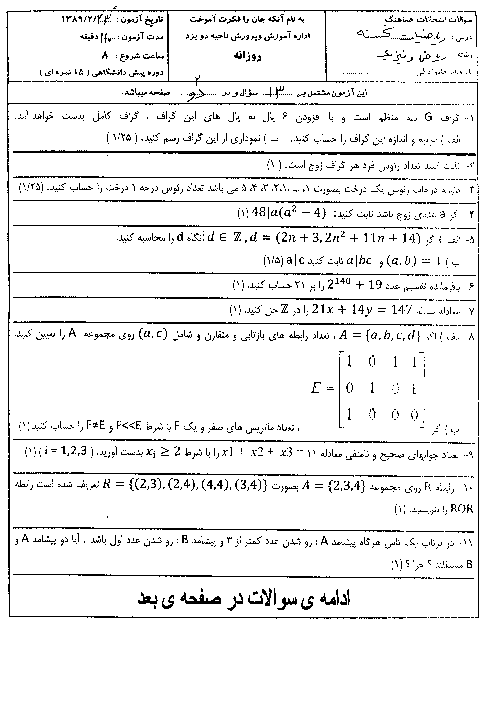 سوالات امتحانات هماهنگ
درس: ریاضیات گسسته
رشته: ریاضی و فیزیک
به نام آنکه جان را فکرت آموخت
اداره آموزش و پرورش ناحیه دو یزد
روزانه
تاریخ آزمون: ۱۳۸۹/۲/۲۳
مدت آزمون: ۱۲۰ دقیقه
ساعت شروع: ۸
دوره پیش دانشگاهی (۱۵ نمره ای)
این آزمون مشتمل بر ۱۳ سؤال و در دو صفحه میباشد.
۱- گراف G منظم است و با افزودن ۶ یال به یال های این گراف ، گراف کامل بدست خواهد آمد.
الف) مرتبه و اندازه این گراف را حساب کنید. ب) نموداری از این گراف رسم کنید. (۱/۲۵)
۲- ثابت کنید تعداد رئوس فرد هر گراف زوج است. (۱)
۳- درجات رئوس یک درخت بصورت ۱، ...، ۱، ۲، ۳، ۴، ۵ می باشد تعداد رئوس درجه ۱ درخت را حساب کنید. (۱/۲۵)
۴- اگر a عددی زوج باشد ثابت کنید: 48|a(a² − 4) (۱)
۵- الف) اگر d ∈ ℤ , d = (2n + 3, 2n² + 11n + 14) آنگاه d را محاسبه کنید.
ب) (a, b) = 1 و a|bc ثابت کنید a|c (۱/۵)
۶- باقیمانده تقسیم عدد 2¹⁴⁰ + 19 را بر ۲۱ حساب کنید. (۱)
۷- معادله 21x + 14y = 147 را در ℤ حل کنید. (۱)
۸- الف) اگر A = {a, b, c, d} ، تعداد رابطه های بازتابی و متقارن و شامل (a, c) روی مجموعه A را تعیین کنید.
E = [1 0 1 1
0 1 0 1
1 0 0 0]
ب) اگر ، تعداد ماتریس های صفر و یک F با شرط F<<E و F≠E را حساب کنید (۱)
۹- تعداد جوابهای صحیح و نامنفی معادله x1 + x2 + x3 = ۱۱ را با شرط xᵢ ≥ 2 بدست آورید. (i = 1,2,3) (۱)
۱۰- رابطه R روی مجموعه A = {2,3,4} بصورت R = {(2,3), (2,4), (4,4), (3,4)} تعریف شده است رابطه
ROR را بنویسید. (۱)
۱۱- در پرتاب یک تاس هرگاه پیشامد A : رو شدن عدد کمتر از ۳ و پیشامد B : رو شدن عدد اول باشد ، آیا دو پیشامد A و
B مستقلند ؟ چرا ؟ (۱)
ادامه ی سوالات در صفحه ی بعد